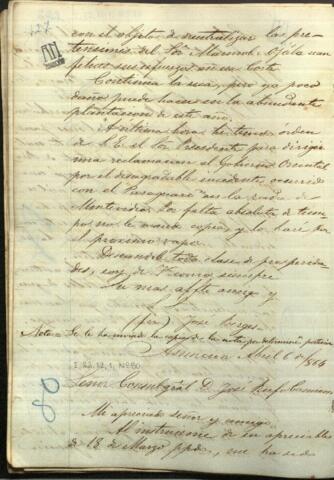 con el objeto de neutralizar las pre-
tensiones del Sor
Continua la seca, pero ya poco
daño puede hacer en la abundante
plantacion de este año.
A última hora he tenido órden
de S. E. el Sor Presidente para dirigir
una reclamacion al Gobierno Oriental
por el desagradable incidente ocurrido
con el Paraguarí en la rada de
Montevideo. Por falta absoluta de tiem-
po no le mando copia, y lo haré por
el proximo vapor.
Deseandole toda clase de prosperida-
des, soy de V. como siempre
Su mas affte amigo y
(fdo) José Berges.
Nota. Se le ha enviado la copia de la nota por determinacion posterior
Asuncion Abril 6 de 1864
I-22, 12, 1, Nº 80
80
Señor Consul gral D. José Rufo Caminos
Mi apreciado señor y amigo.
Al instruirme de su apreciable
de 18 de Marzo ppdo, me ha sido